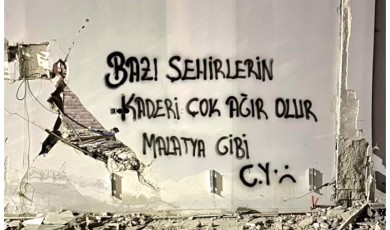 BAZI ŞEHİRLERİN
KADERİ ÇOK AĞIR OLUR
MALATYA GİBİ
C.Y